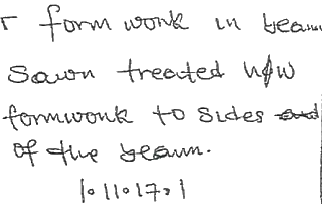 r form work in beam
Sawn treated h/w
formwork to sides
of the beam.
1.11017.1